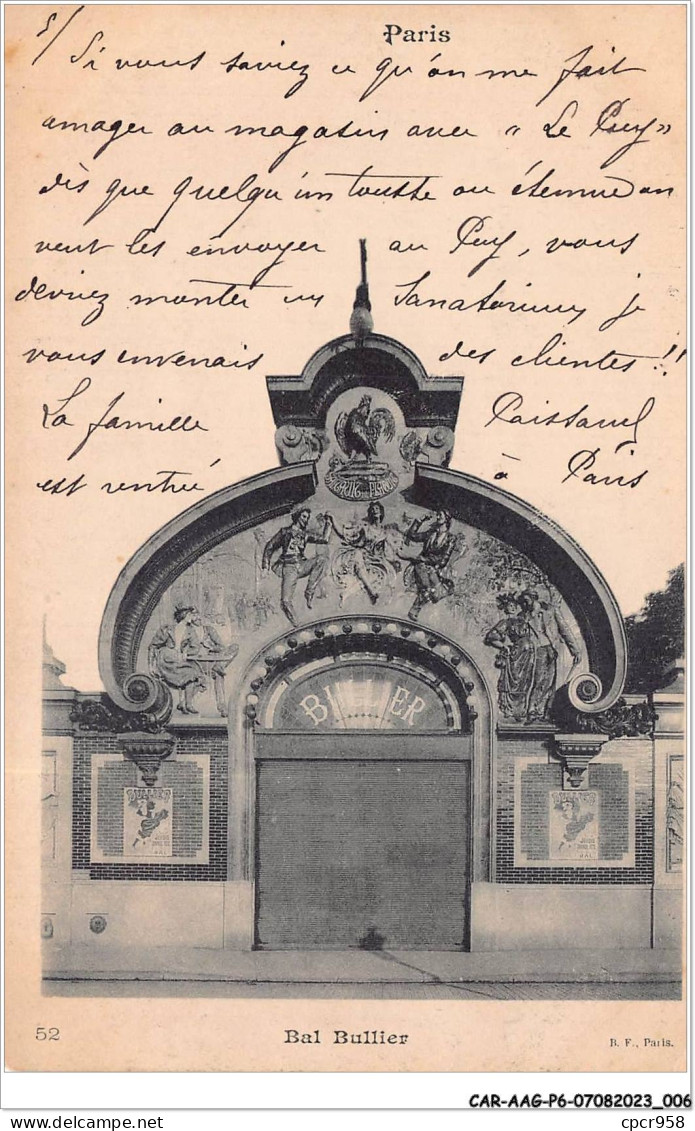 Paris
5/ Si vous saviez ce qu'on me fait
amager au magasin avec " Le Puy "
dès que quelqu'un tousse ou éternue on
veut les envoyer au Puy, vous
devriez monter un Sanatorium, je
vous envenais des clientes !!
La famille
est rentrée à Paris
SALTAVIT ET PLACUIT
BULLIER
BULLIER
BULLIER
52
Bal Bullier
B. F., Paris.
CAR-AAG-P6-07082023_006
cpcr958